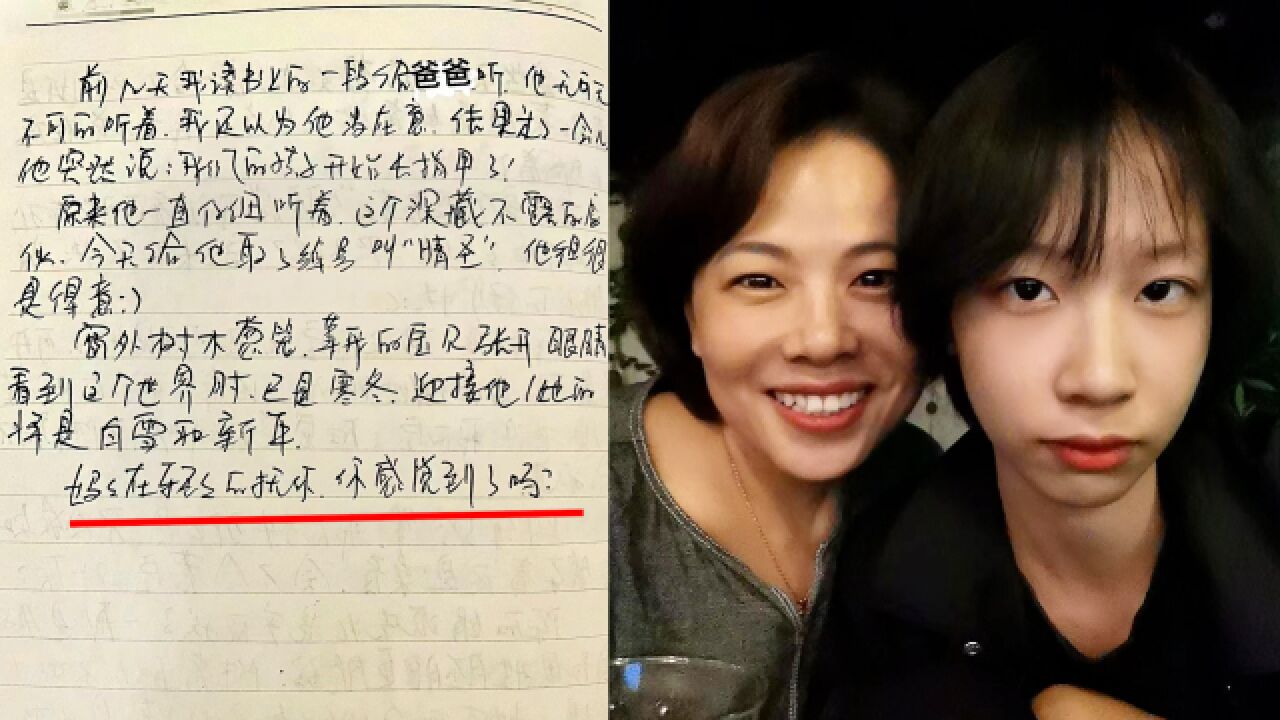 前几天我读书上的一段给爸爸听.他无可无
不可的听着.我还以为他没在意.结果过了一会儿
他突然说:我们的孩子开始长指甲了!
原来他一直仔细听着.这个深藏不露的家
伙.今天给他取了绰号叫“情圣”.他
是得意:)
窗外树木葱茏.等我的宝贝张开眼睛
看到这个世界时.已是寒冬.迎接他/她的
将是白雪和新年.
妈々在轻々的抚你.你感觉到了吗?